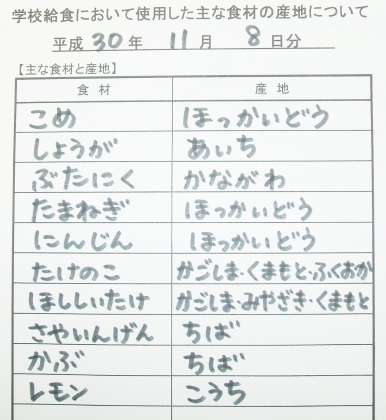 学校給食において使用した主な食材の産地について
平成 30 年 11 月 8 日分
【主な食材と産地】
食材 産地
こめ ほっかいどう
しょうが あいち
ぶたにく かながわ
たまねぎ ほっかいどう
にんじん ほっかいどう
たけのこ かごしま・くまもと・ふくおか
ほししいたけ かごしま・みやざき・くまもと
さやいんげん ちば
かぶ ちば
レモン こうち